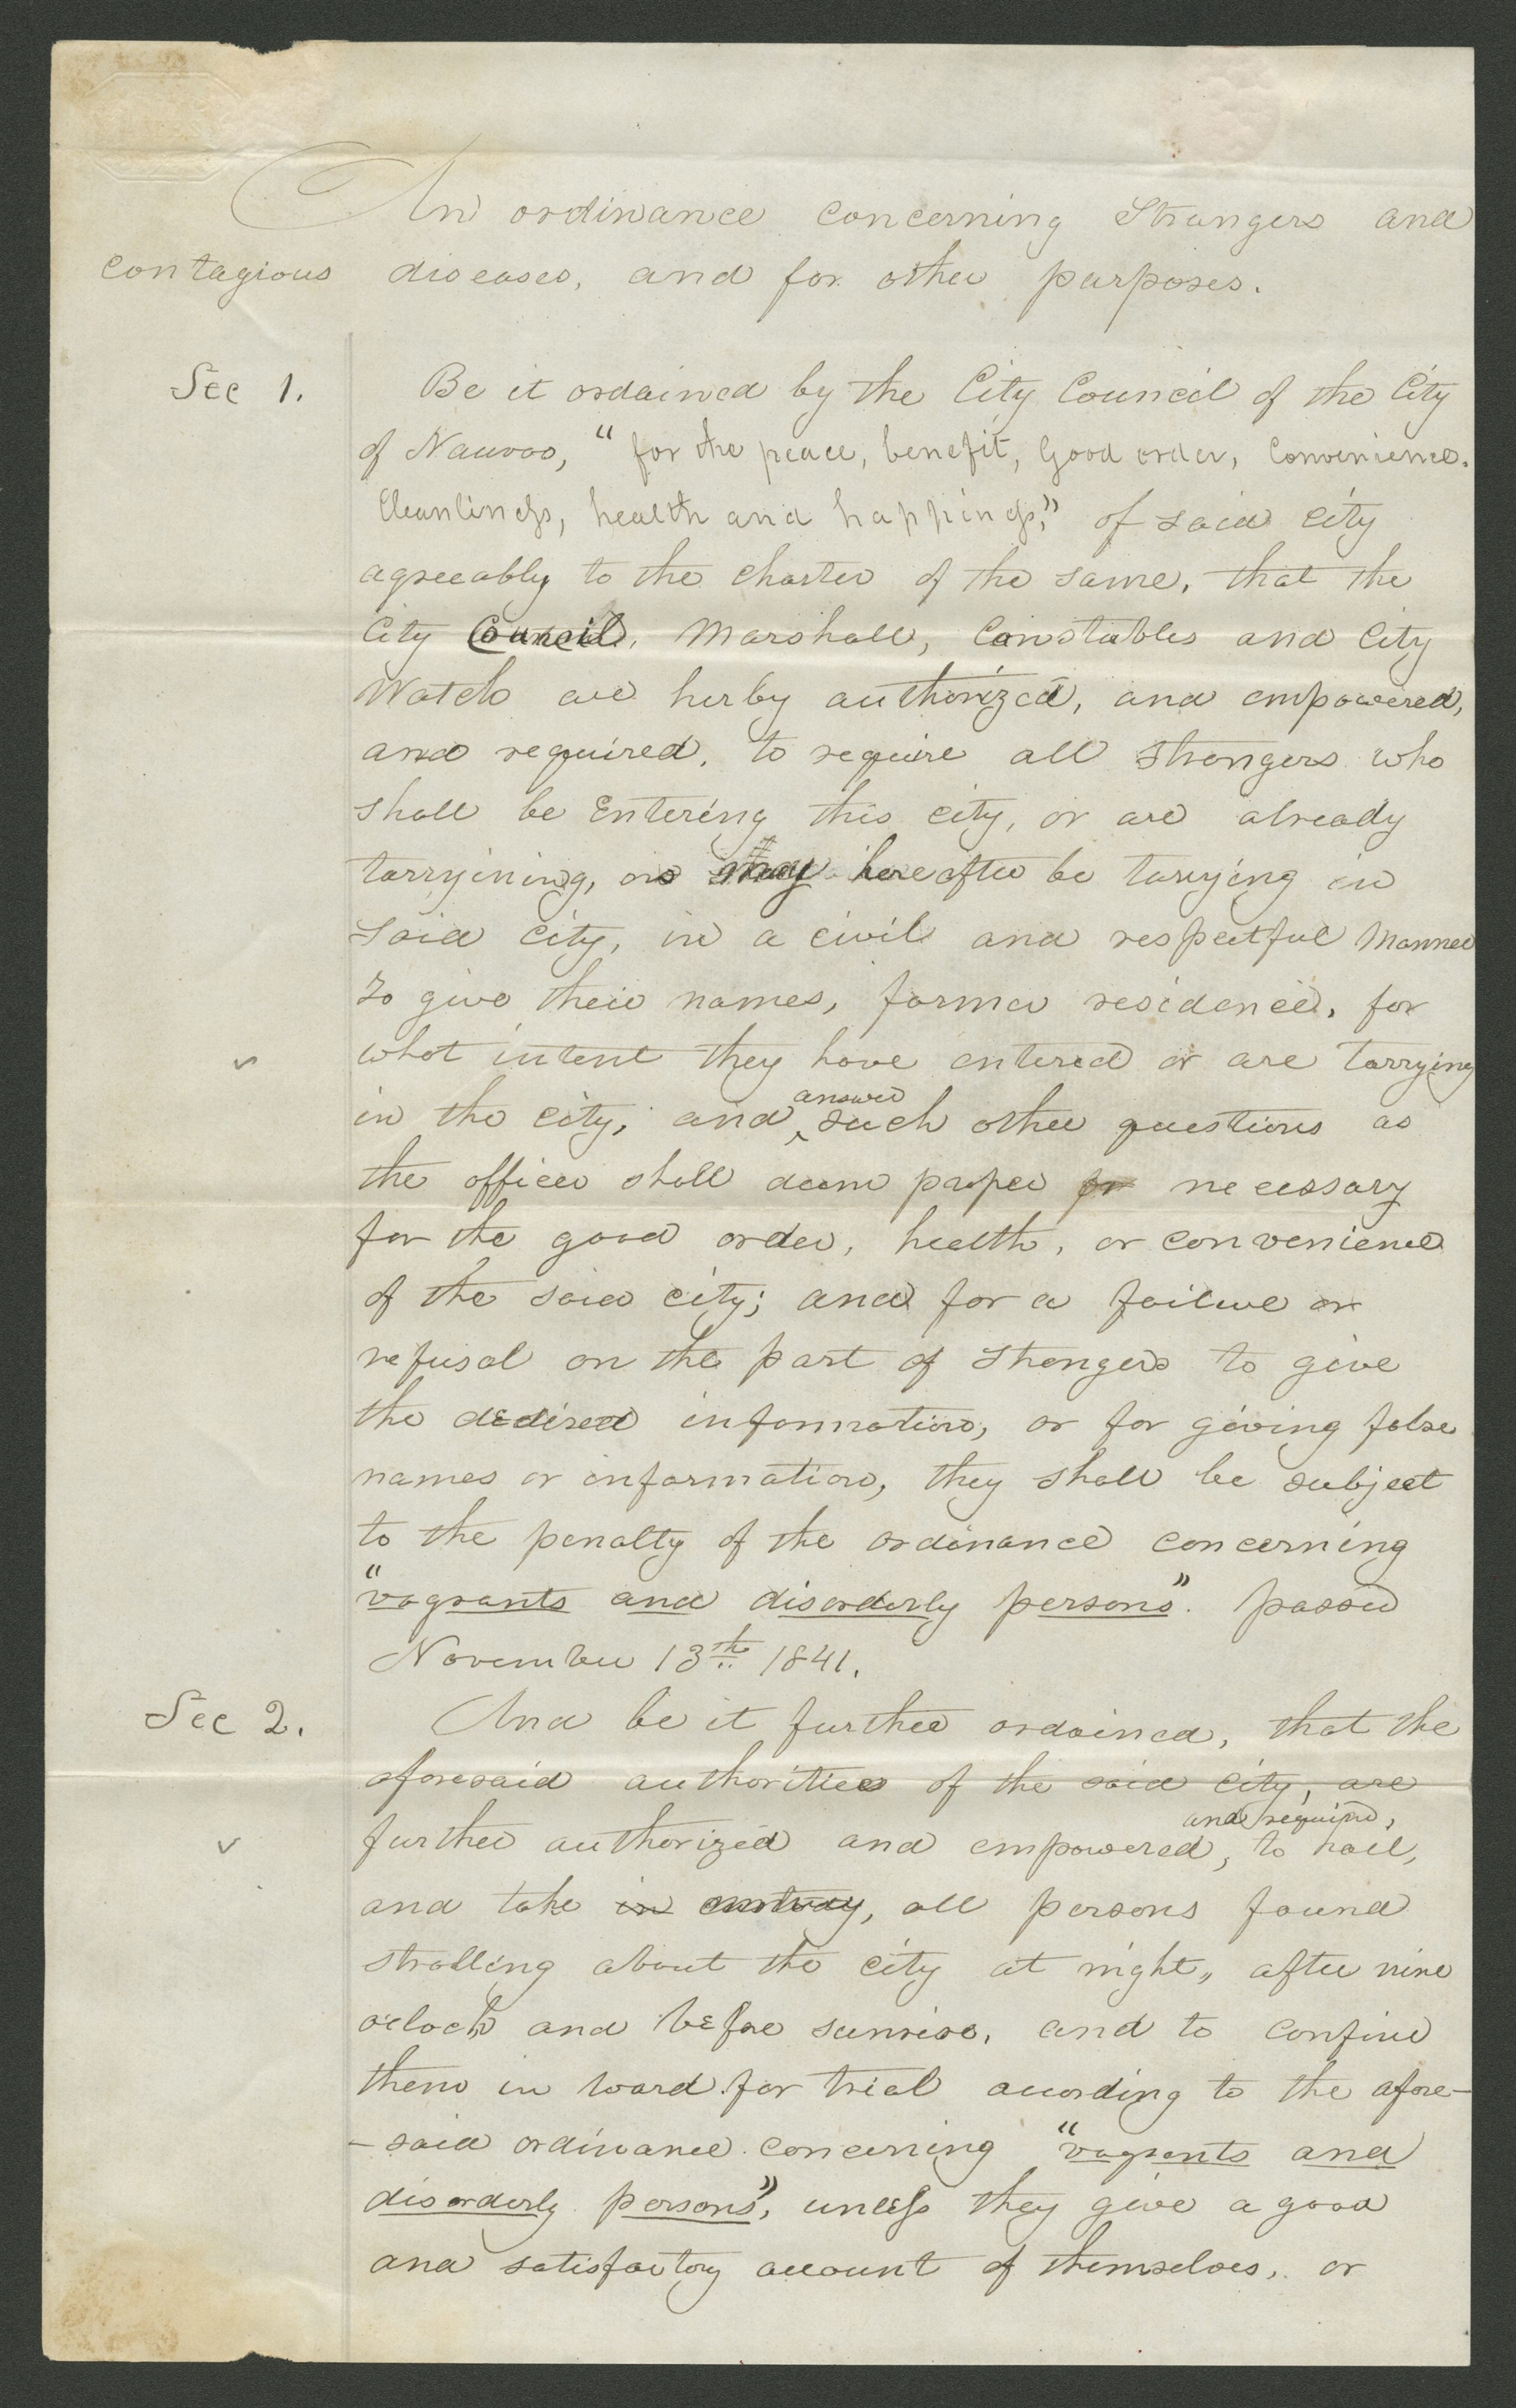 An ordinance concerning Strangers and
contagious diseases, and for other purposes.
Sec 1. Be it ordained by the City Council of the City
of Nauvoo, "for the peace, benefit, Good order, Convenience.
Cleanliness, health and happiness," of said city
agreeably to the charter of the same, that the
City Council, Marshall, Constables and City
Watch are herby authorized, and empowered,
and required, to require all strangers who
shall be Entering this city, or are already
tarryining, or may hereafter be tarrying in
said city, in a civil and respectful manner
to give their names, former residence, for
what intent they have entered or are tarrying
in the city, and answer such other questions as
the officer shall deem proper or necessary
for the good order, health, or convenience
of the said city; and for a failure or
refusal on the part of strangers to give
the desired information, or for giving false
names or information, they shall be subject
to the penalty of the ordinance concerning
"vagrants and disorderly persons". passed
November 13th 1841.
Sec 2. And be it further ordained, that the
aforesaid authorities of the said city, are
further authorized and empowered, and required, to hail,
and take in custody, all persons found
strolling about the city at night, after nine
oclock and before sunrise, and to confine
them in ward for trial acording to the afore-
-said ordinance concerning "vagrants and
disorderly persons", unless they give a good
and satisfactory account of themselves, or